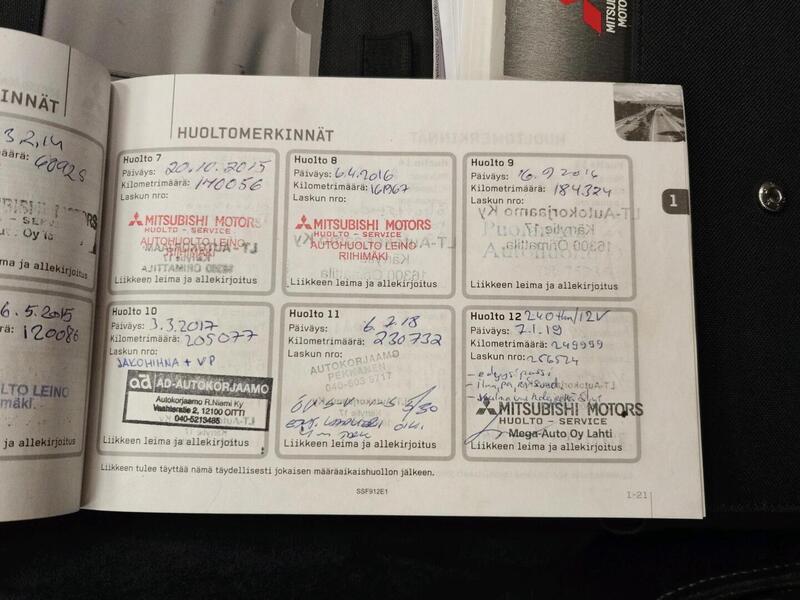 MITSUBISHI
MOTORS
INNÄT
3.2.14
määrä: 60925
Oy
ma ja allekirjoitus
6.5.2015
rä: 120086
LTO LEINO
ma ja allekirjoitus
HUOLTOMERKINNÄT
1
Huolto 7
Päiväys: 20.10.2015
Kilometrimäärä: 140056
Laskun nro:
MITSUBISHI MOTORS
HUOLTO - SERVICE
AUTOHUOLTO LEINO
RIIHIMÄKI
Liikkeen leima ja allekirjoitus
Huolto 8
Päiväys: 6.4.2016
Kilometrimäärä: 161967
Laskun nro:
MITSUBISHI MOTORS
HUOLTO - SERVICE
AUTOHUOLTO LEINO
RIIHIMÄKI
Liikkeen leima ja allekirjoitus
Huolto 9
Päiväys: 16.9 2016
Kilometrimäärä: 184324
Laskun nro:
LT-Autokorjaamo Ky
Käritie 17
16300 Orimattila
Liikkeen leima ja allekirjoitus
Huolto 10
Päiväys: 3.3.2017
Kilometrimäärä: 205077
Laskun nro:
JAKOHIHNA + VP
ad AD-AUTOKORJAAMO
Autokorjaamo R.Niemi Ky
Vaahteratie 2, 12100 OITTI
040-5213485
Liikkeen leima ja allekirjoitus
Huolto 11
Päiväys: 6.2.18
Kilometrimäärä: 230732
Laskun nro:
AUTOKORJAAMO
5/30
Liikkeen leima ja allekirjoitus
Huolto 12 240tkm/12V
Päiväys: 7.1.19
Kilometrimäärä: 249999
Laskun nro: 256524
MITSUBISHI MOTORS
HUOLTO - SERVICE
Mega-Auto Oy Lahti
Liikkeen leima ja allekirjoitus
Liikkeen tulee täyttää nämä täydellisesti jokaisen määräaikaishuollon jälkeen.
SSF912E1
1-21